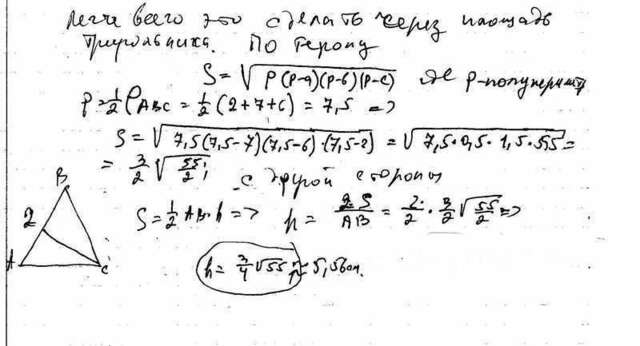 легче всего это сделать через площадь
треугольника. По Герону
S = √(p(p-a)(p-b)(p-c)) где p-полупериметр
P = 1/2 P ABC = 1/2 (2+7+6) = 7,5 =>
S = √(7,5(7,5-7)(7,5-6)·(7,5-2)) = √(7,5·0,5·1,5·5,5) =
= 3/2 √(55/2); с другой стороны
S = 1/2 AB·h => h = 2S/AB = 2/2 · 3/2 √(55/2) =>
h = 3/4 √55 ≈ 5,56см.
B
2
A
C